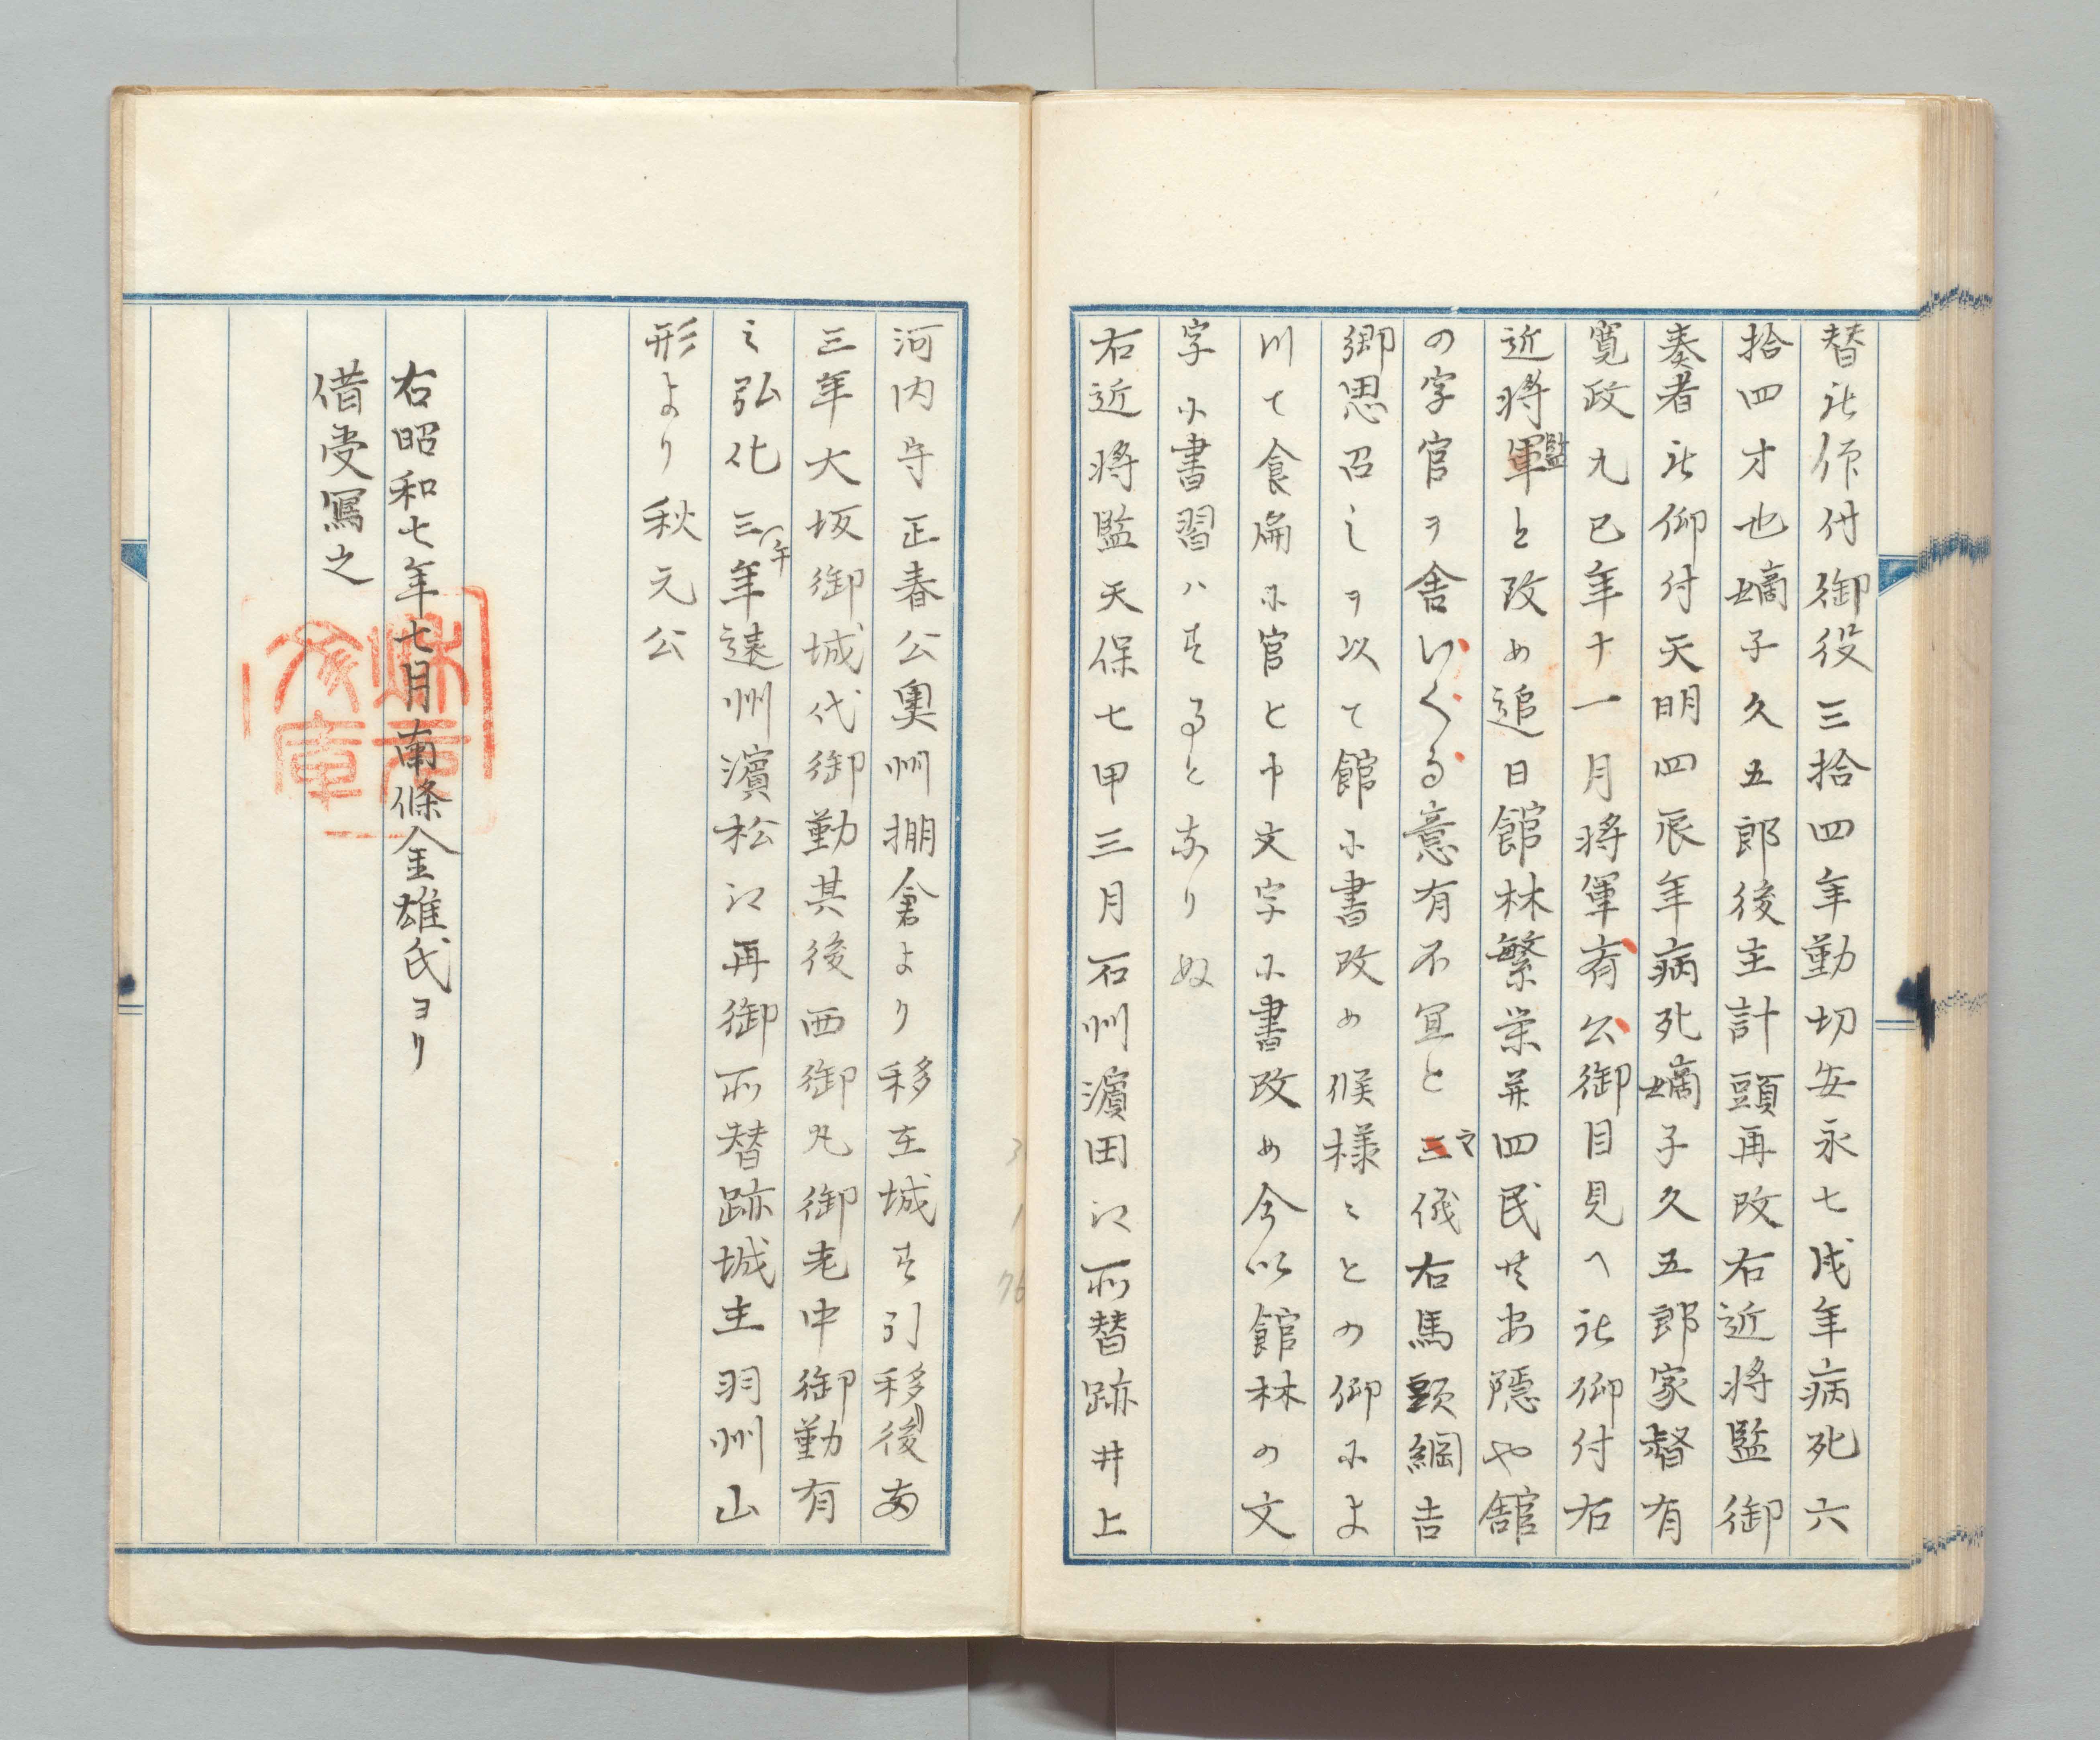 替被仰付御役三拾四年勤切安永七戌年病死六
拾四才也嫡子久五郎後主計頭再改右近将監御
奏者被仰付天明四辰年病死嫡子久五郎家督有
寛政九巳年十一月将軍斉公御目見へ被仰付右
近将軍と改め追日館林繁栄并四民共安隠也舘
監
の字官ヲ舎いくる意有不宜と云儀右馬頭綱吉
卿思召しヲ以て館ニ書改め候様ニとの仰によ
川て食扁に官と申文字に書改め今以館林の文
字に書習ハすると成りぬ
右近将監天保七甲三月石州濱田江所替跡井上
河内守正春公奥州棚倉より移在城す引移後
三年大坂御城代御勤其後西御丸御老中御勤有
之弘化三年遠州濱松江再御所替跡城主羽州山
午
形より秋元公
右昭和七年七月南條金雄氏ヨリ
借受寫之
文庫